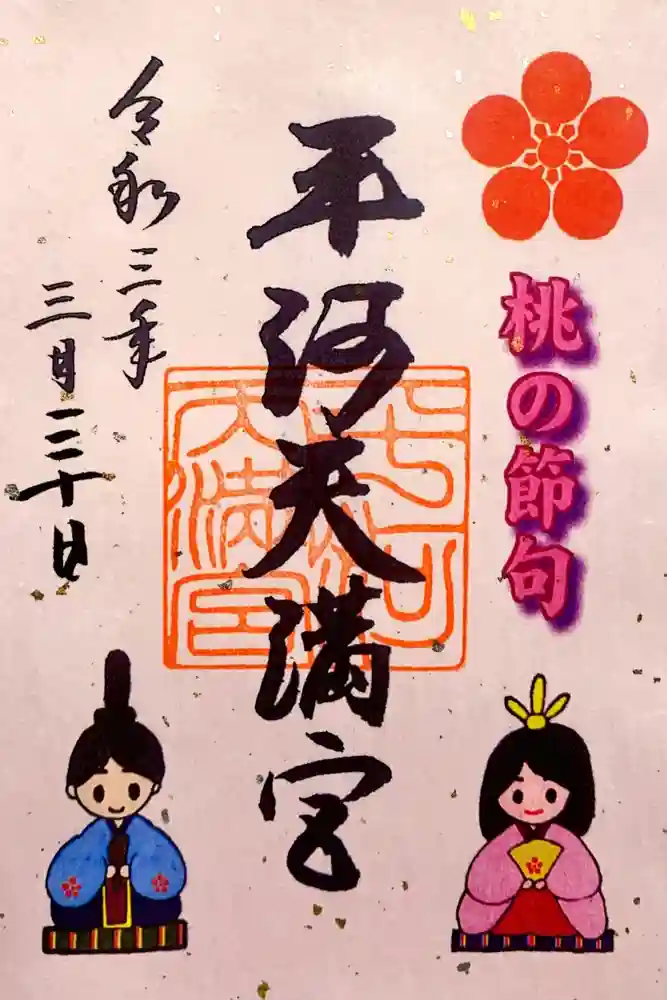 桃の節句
平河天満宮
平河
天満宮
令和三年
三月三十日